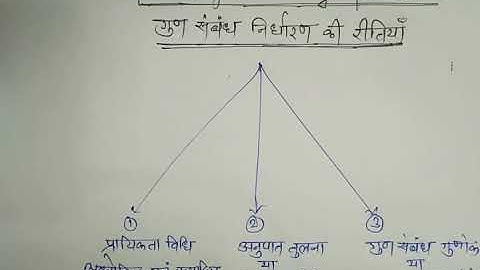 गुण संबंध निर्धारण की रीतियाँ
① ② ③
प्रायिकता विधि अनुपात तुलना गुण संबंध
या या